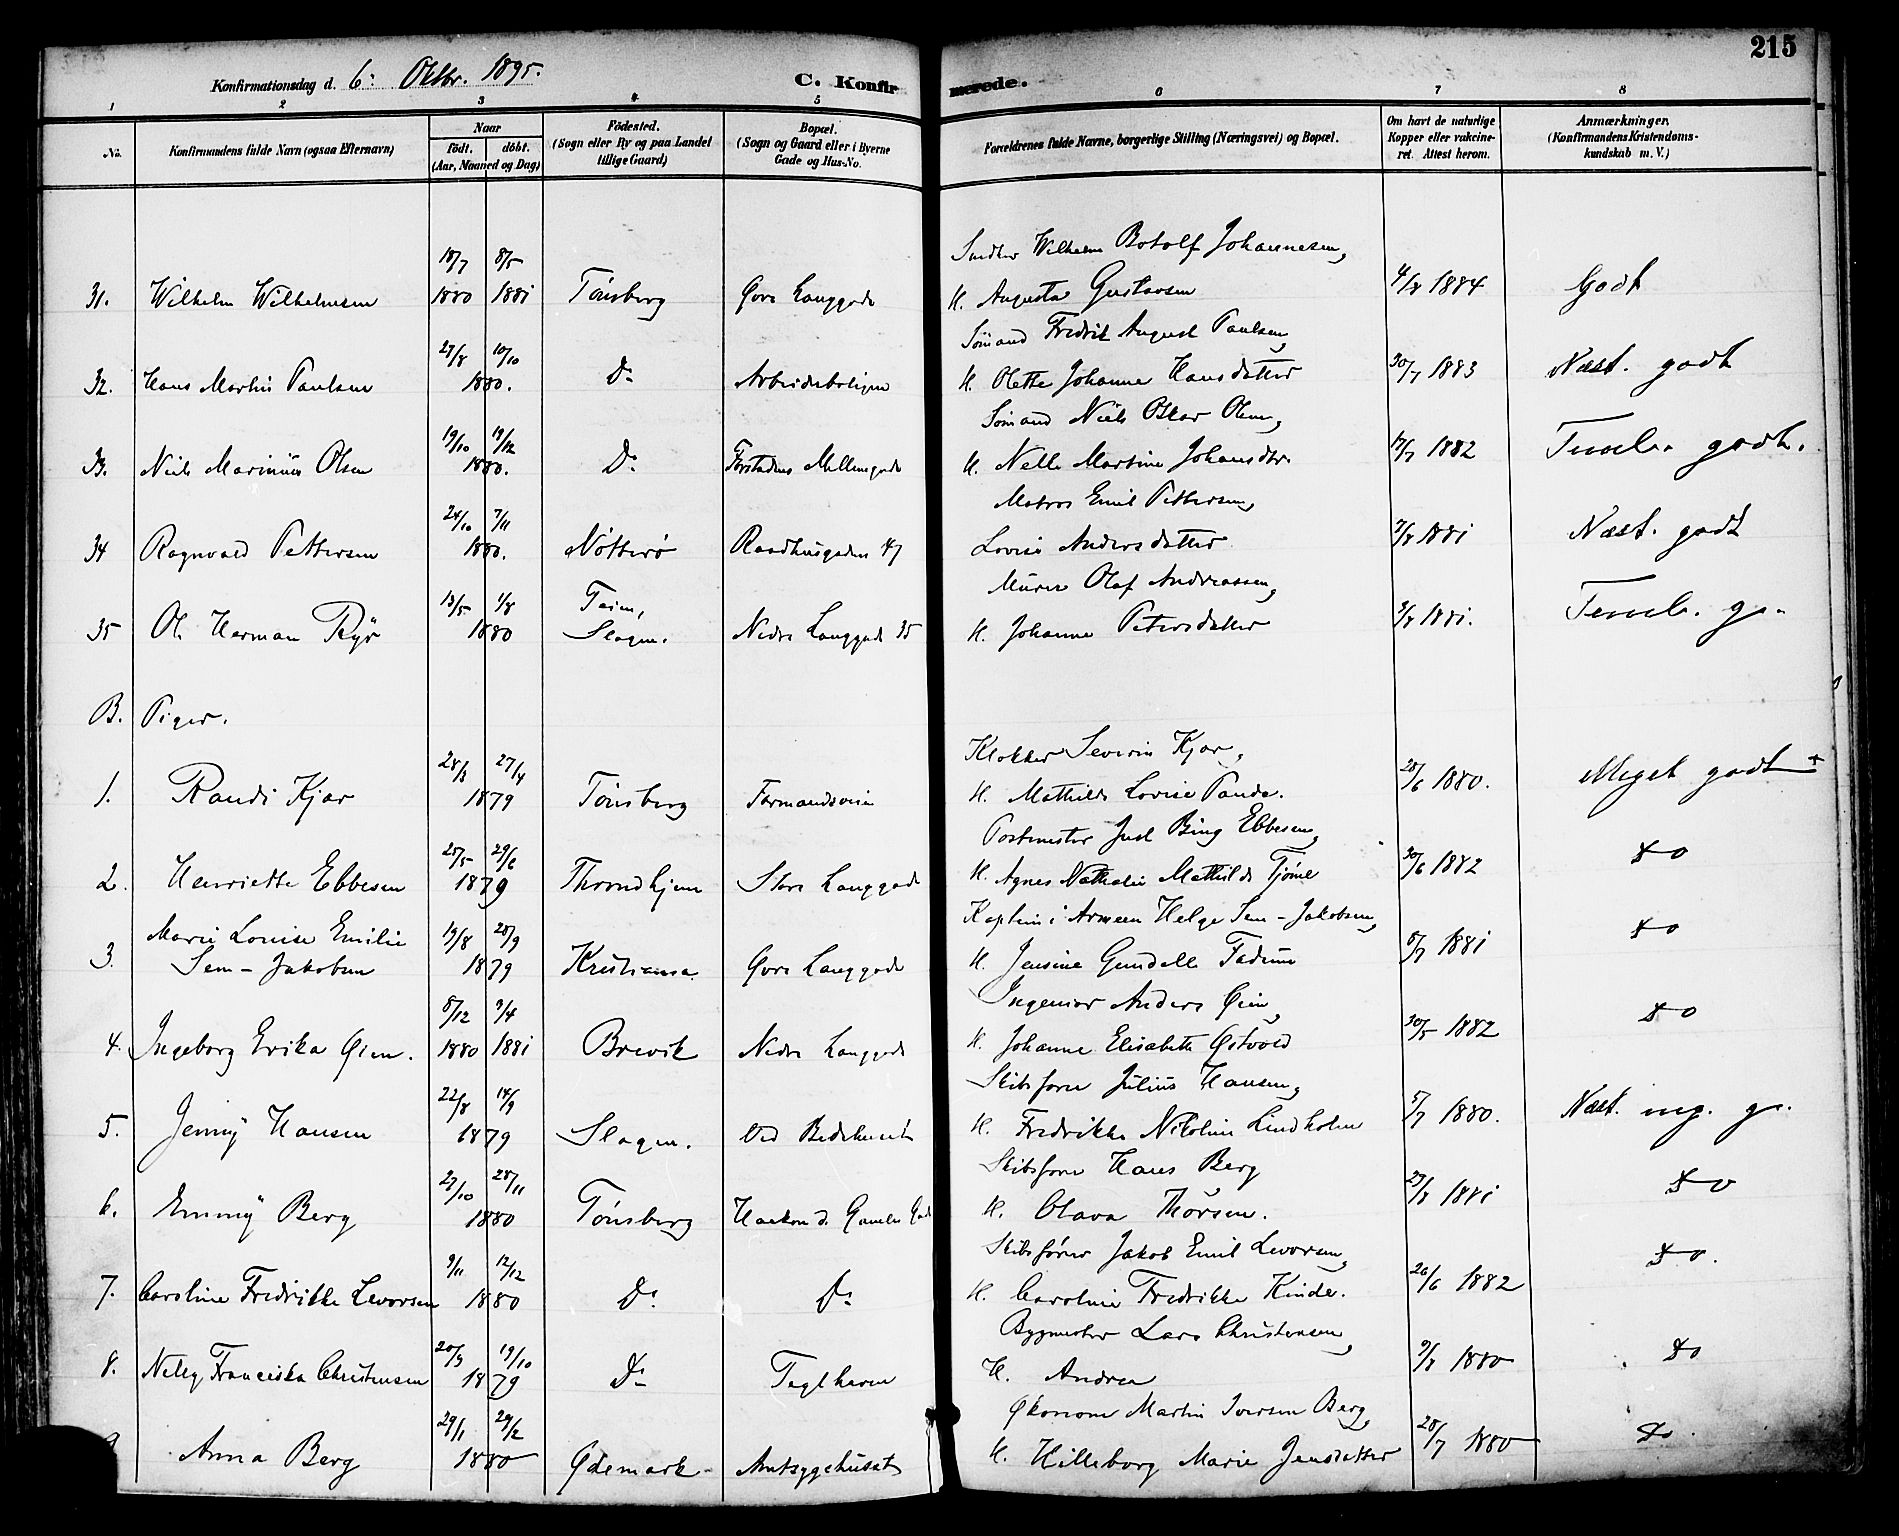 215
Konfirmationsdag d. 6: Oktbr. 1895.
C. Konfirmerede.
1 2 3 4 5 6 7 8
No.
Konfirmandens fulde Navn (ogsaa Efternavn)
Naar
födt. döbt.
(Aar, Maaned og Dag)
Födested.
(Sogn eller By og paa Landet
tillige Gaard)
Bopæl.
(Sogn og Gaard eller i Byerne
Gade og Hus-No.
Forældrenes fulde Navne, borgerlige Stilling (Næringsvei) og Bopæl.
Om havt de naturlige
Kopper eller vakcine-
ret. Attest herom.
Anmærkninger.
(Konfirmandens Kristendoms-
kundskab m. V.)
18/7 8/5 Wilhelm Botolf Johannesen,
31. Wilhelm Wilhelmsen 1880 1881 Tönsberg Övre Langgade H. Augusta Gustavsen 4/8 1884 Godt
27/8 10/10 Sömand Fredrik August Paulsen,
32. Hans Martin Paulsen 1880. Do Arbeiderboligen H. Olette Johanne Hansdatter 30/7 1883 Næst. godt
19/10 19/12 Sömand Niels Oskar Olsen,
33. Niels Marinius Olsen 1880. Do Forstadens Möllergade H. Nelle Martine Johansdtr. 17/7 1882 Temel. godt.
24/10 7/11 Matros Emil Pettersen,
34 Ragnvald Pettersen 1880. Nötterö Raadhusgaden 47 Lovise Andersdatter 7/8 1881 Næst. godt
13/5 1/8 Teien, Murer Olaf Andreassen,
35 Ole Herman Ryö 1880 Slagen. Nedre Langgade 35 H. Johanne Petersdatter 3/8 1881. Temel. go.
B. Piger.
28/3 27/4 Klokker Severin Kjær,
1. Randi Kjær 1879 Tönsberg Farmandsveien H. Mathilde Lovise Paude. 28/6 1880. Meget godt +
25/5 29/6 Postmester Just Bing Ebbesen,
2. Henriette Ebbesen 1879 Throndhjem Store Langgade H. Agnes Nathalie Mathilde Tjöme 30/6 1882 do
Marie Louise Emilie 19/8 28/9 Kaptein i Armeen Helge Sem-Jakobsen,
3. Sem-Jakobsen 1879 Kristiania Övre Langgade H. Jensine Gundelle Fadum 8/7 1881 do
8/12 3/4 Ingeniør Anders Øien,
4. Ingeborg Erika Øien. 1880 1881 Brevik Nedre Langgade H. Johanne Elisabeth Østvold 30/5 1882 do
22/8 14/9 Skibsfører Julius Hansen,
5. Jenny Hansen 1879 Slagen. Ved Bedehuset H. Fredrikke Nikoline Lindholm 5/7 1880. Næst. mg. go.
27/10 28/11 Skibsfører Hans Berg
6. Emmy Berg 1880 Tönsberg Haakon d. Gamles Gade H. Olava Thorsen. 23/8 1881 do
9/11 12/12 Skibsfører Jakob Emil Levorsen,
7. Caroline Fredrikke Levorsen 1880 Do. Do H. Caroline Fredrikke Kinde. 26/6 1882 do.
20/3 19/10 Bygmester Lars Christensen,
8. Nelly Franciska Christensen 1879 Do Teglhaven H. Andrea 9/8 1880 do
29/1 29/2 Økonom Martin Iversen Berg,
9. Anna Berg 1880 Ødemark Amtssygehuset H. Hilleborg Marie Jensdatter 28/7 1880 do.